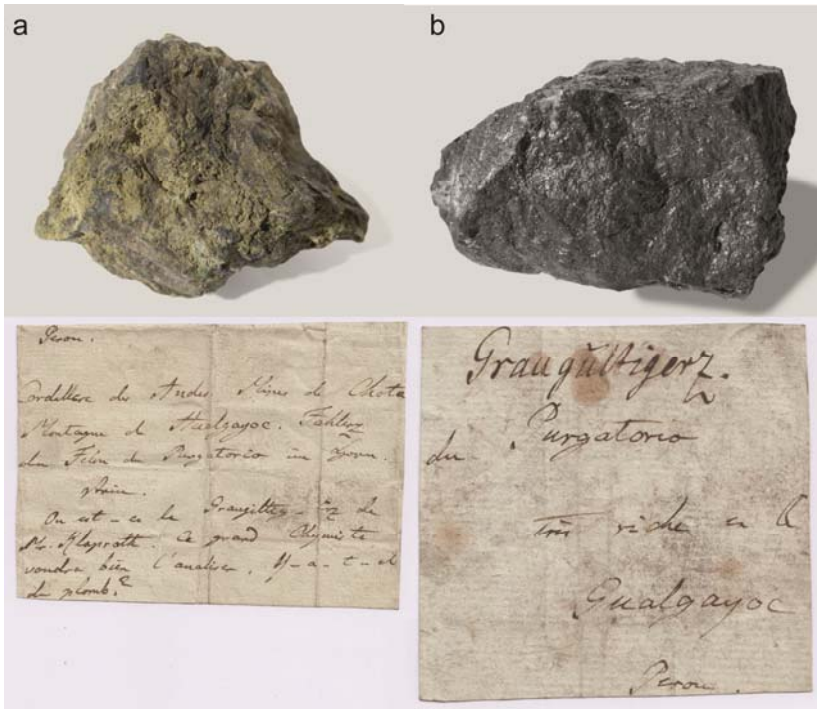 a
b
Perou.
Cordillere des Andes Mines de Chota
Montagne de Hualgayoc. Fahlerz
du Filon du Purgatorio im
Ou est-ce le Graugiltig-Erz de
Mr. Klaproth. Ce grand Chymiste
voudra bien l'analiser. Y-a-t-il
du plomb?
Graugültigerz.
du Purgatorio
Très riche en
Gualgayoc
Perou.